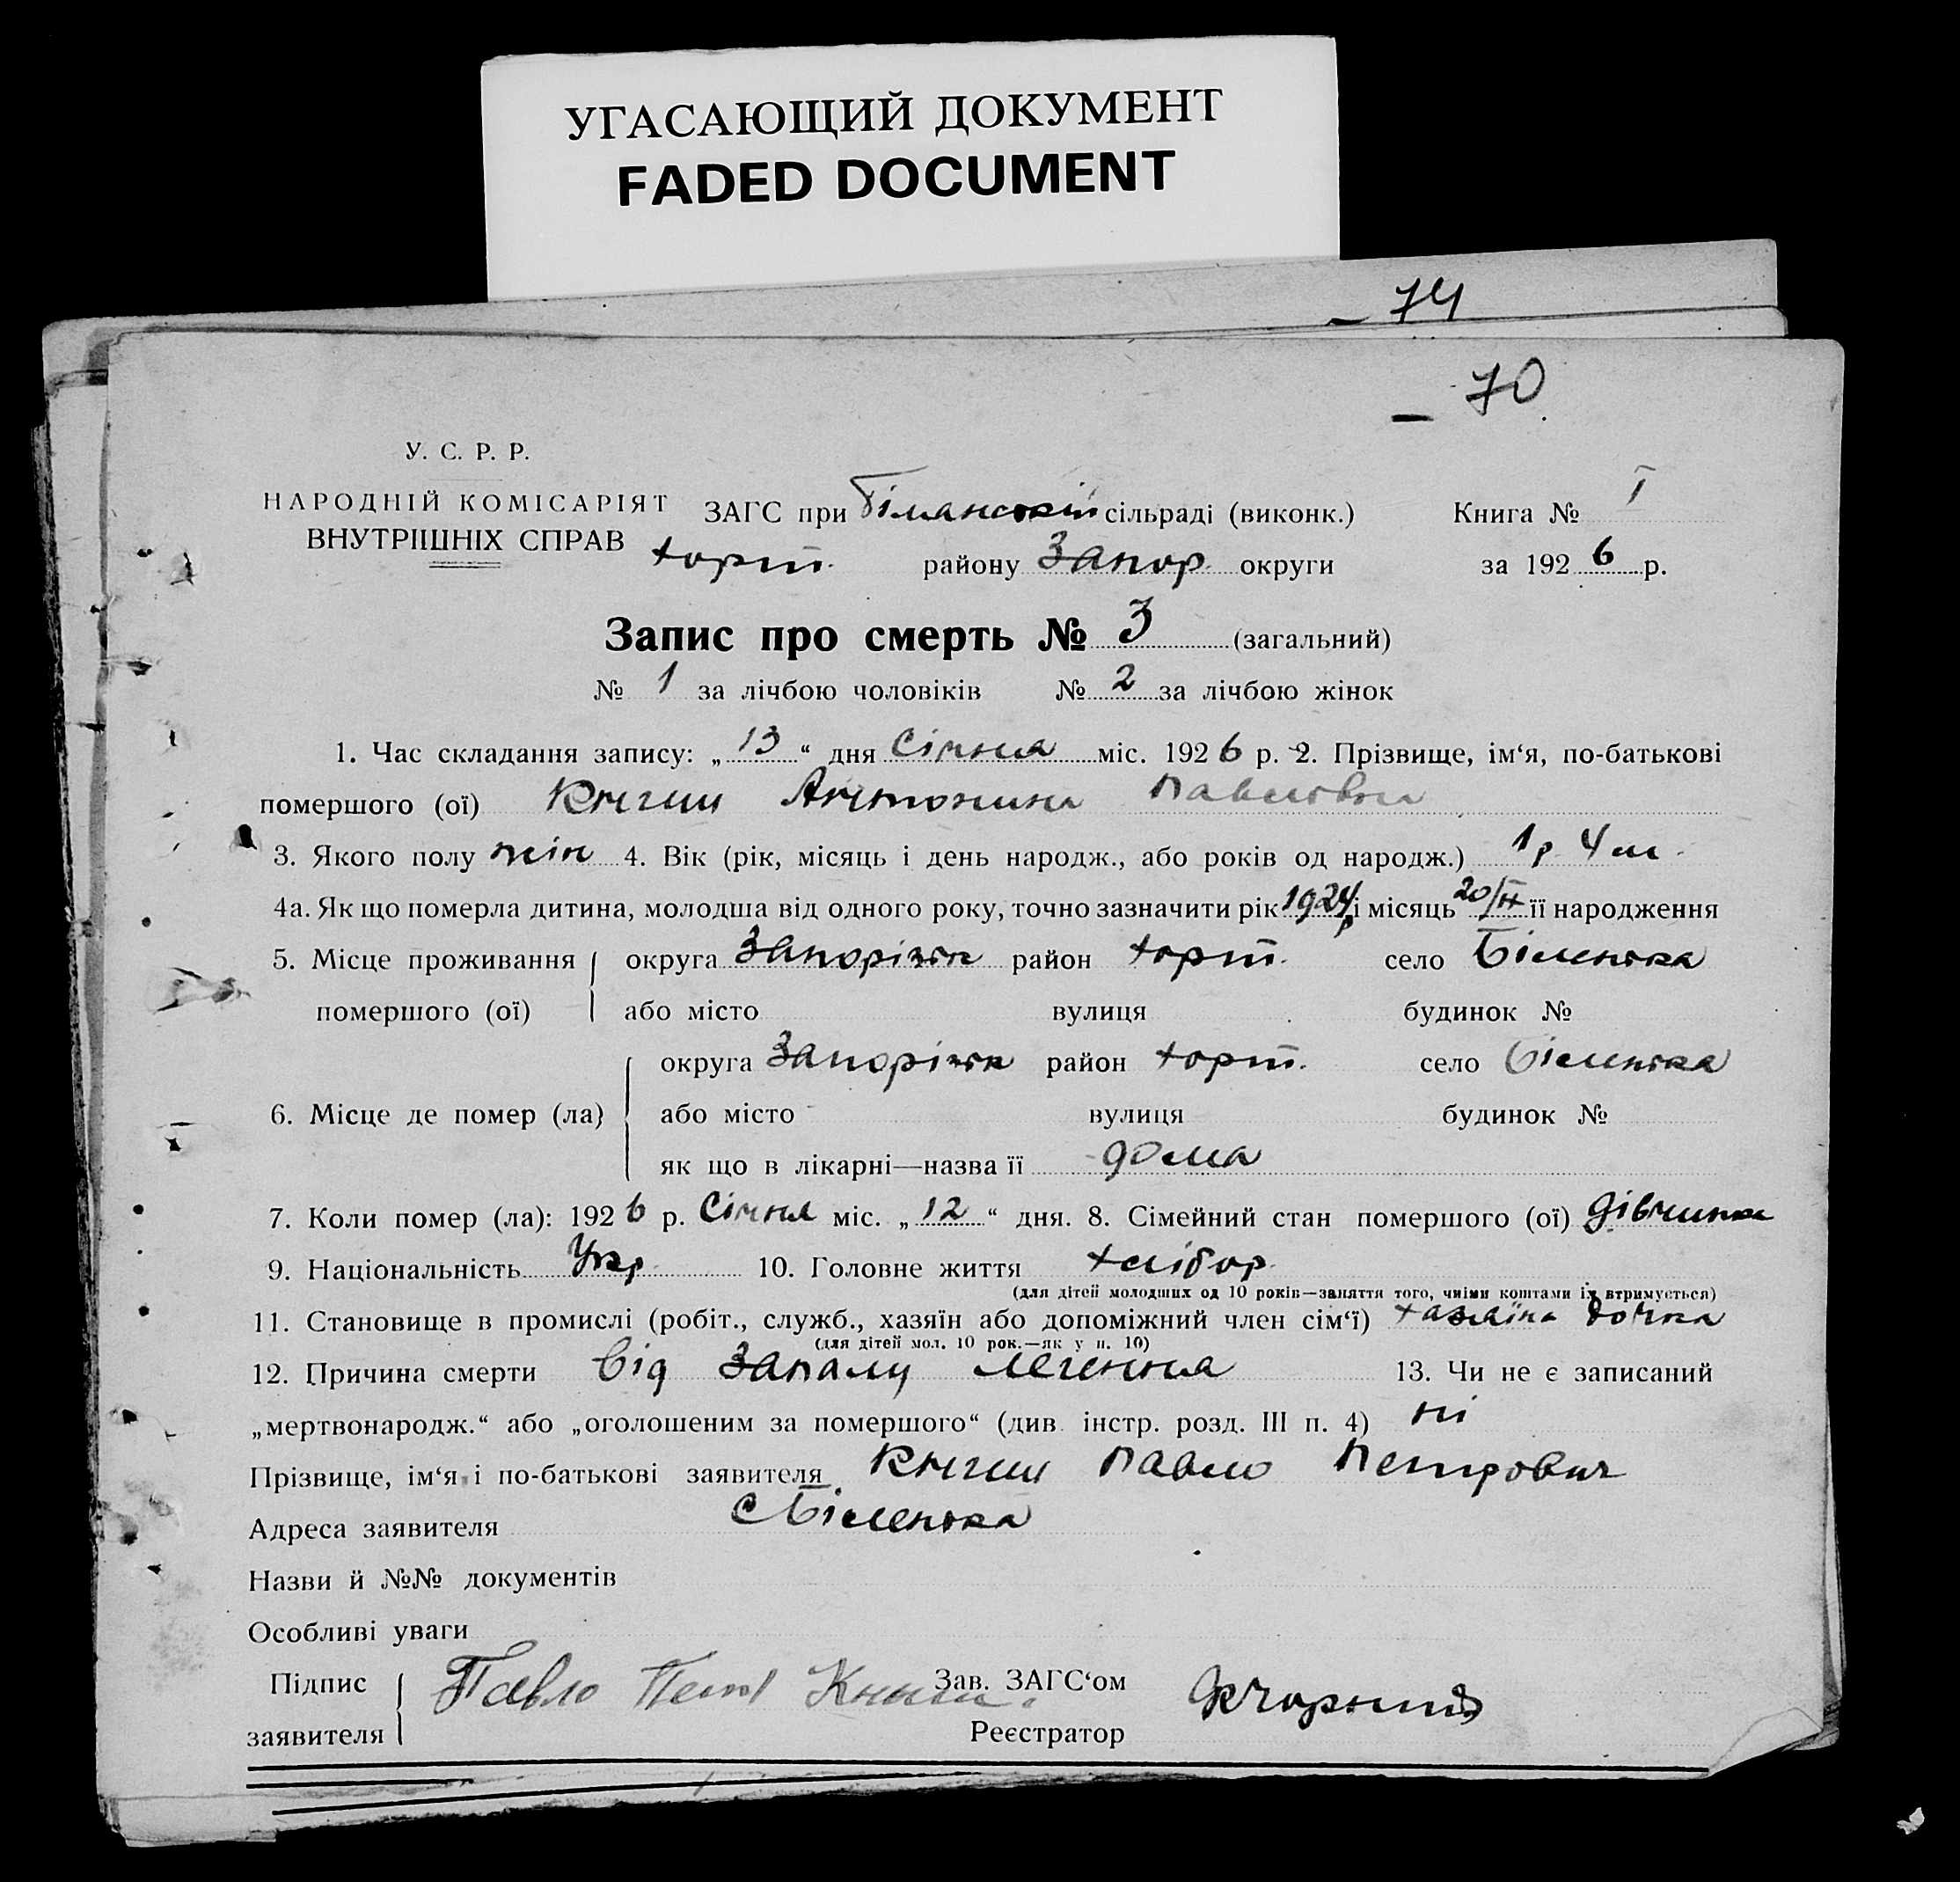 УГАСАЮЩИЙ ДОКУМЕНТ
FADED DOCUMENT
74
70
У. С. Р. Р.
НАРОДНІЙ КОМІСАРІЯТ
ВНУТРІШНІХ СПРАВ
ЗАГС при сільраді (виконк.) Книга № I
Хорт. району Запор. округи за 1926 р.
Запис про смерть № 3 (загальний)
№ 1 за лічбою чоловіків № 2 за лічбою жінок
1. Час складання запису: „13“ дня Січня міс. 1926 р. 2. Прізвище, ім‘я, по-батькові
помершого (ої) Книш Антонина Павловна
3. Якого полу жін 4. Вік (рік, місяць і день народж., або років од народж.) 1 р 4 м.
4а. Як що померла дитина, молодша від одного року, точно зазначити рік 1924 р і місяць 20/ її народження
5. Місце проживання округа Запоріжж район Хорт. село Біленька
помершого (ої) або місто вулиця будинок №
округа Запоріжж район Хорт. село Біленька
6. Місце де помер (ла) або місто вулиця будинок №
як що в лікарні—назва її дома
7. Коли помер (ла): 1926 р. Січня міс. „12“ дня. 8. Сімейний стан помершого (ої) дівчинка
9. Національність Укр. 10. Головне життя хлібор.
(для дітей молодших од 10 років—заняття того, чиїми коштами їх втримується)
11. Становище в промислі (робіт., служб., хазяїн або допоміжний член сім‘ї) хазяїна дочка
(для дітей мол. 10 рок.—як у п. 10)
12. Причина смерти Від Запалу легення 13. Чи не є записаний
„мертвонародж.“ або „оголошеним за помершого“ (див. інстр. розд. III п. 4) ні
Прізвище, ім‘я і по-батькові заявителя Книш Павло Петрович
Адреса заявителя с Біленька
Назви й №№ документів
Особливі уваги
Підпис заявителя Павло Книш. Зав. ЗАГС‘ом
Реєстратор